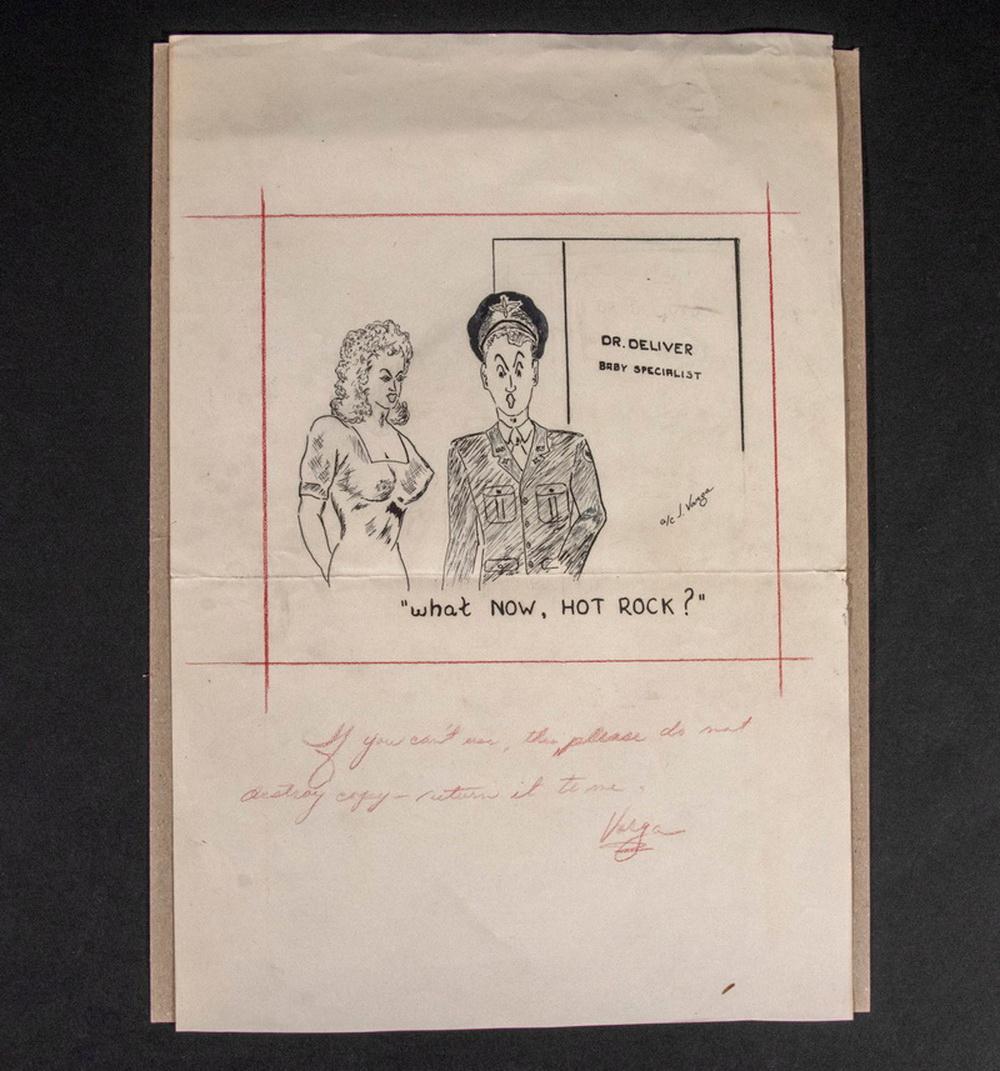 DR. DELIVER
BABY SPECIALIST
a/c J. Varga
"what NOW, HOT ROCK?"
If you can't use, then please do not
destroy copy - return it to me.
Varga